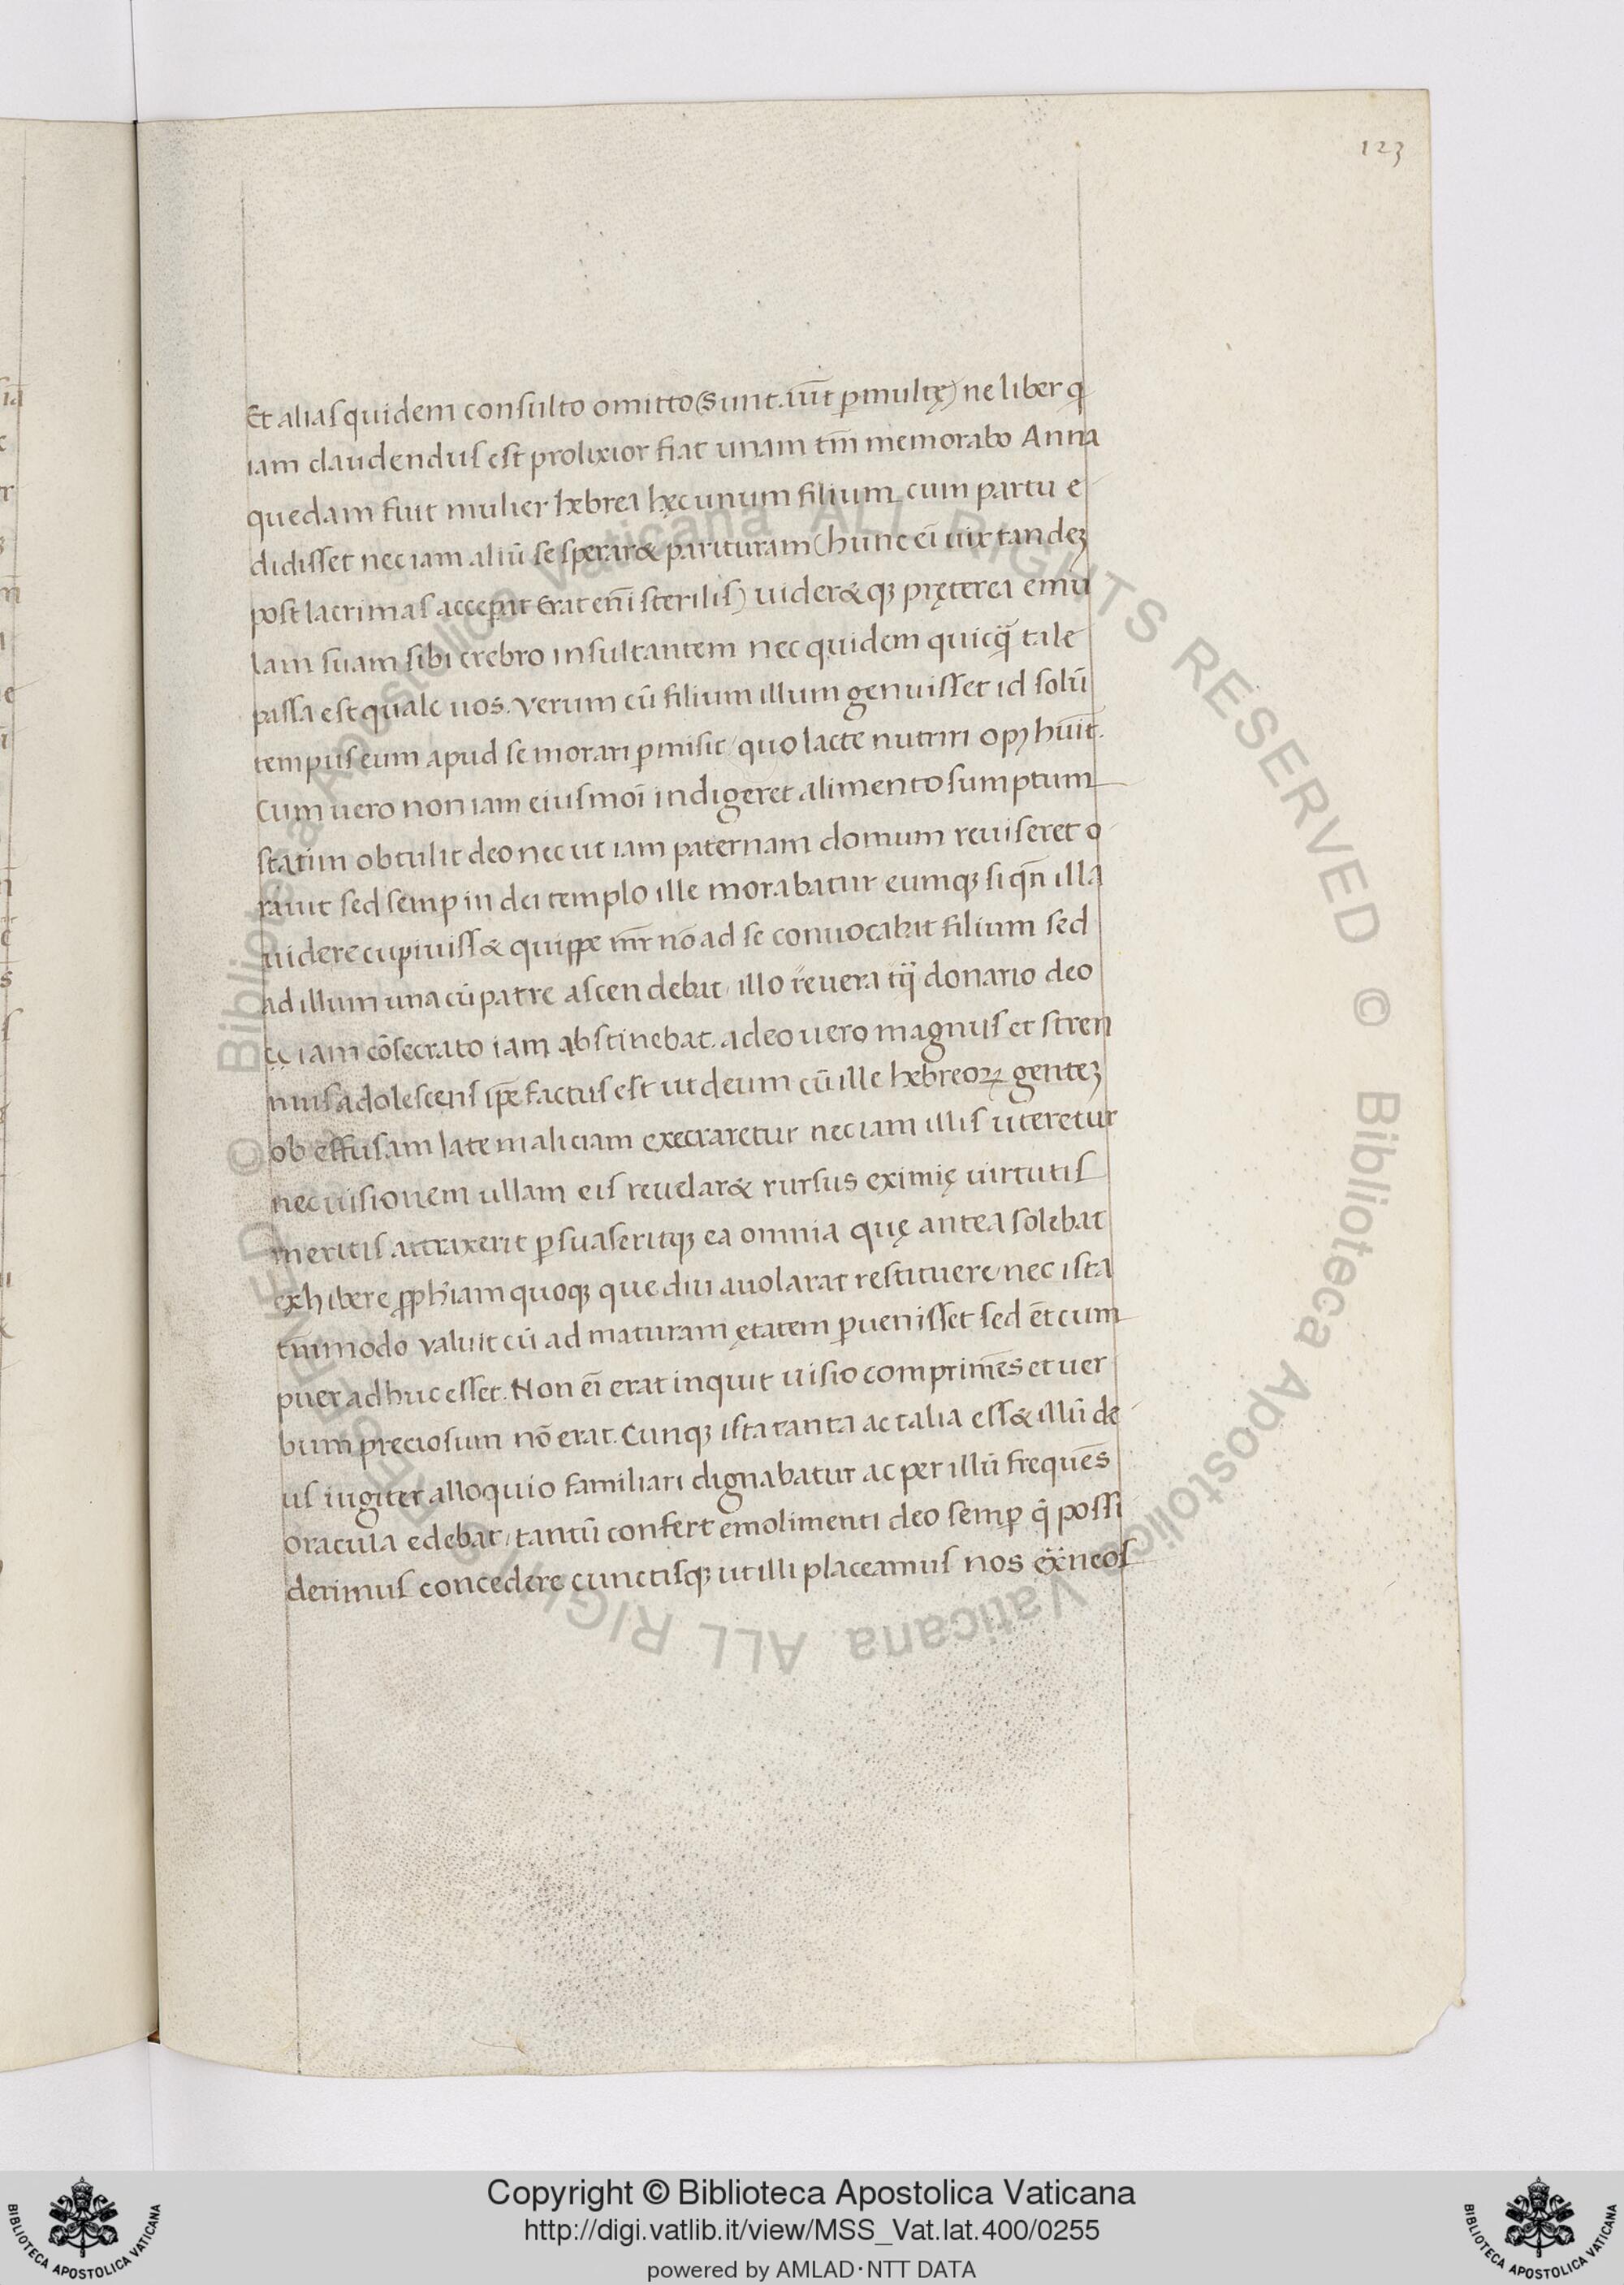 123
Et alias quidem consulto omitto (Sunt. n̄t ꝑmultę) ne liber qͥ
iam claudendus est prolixior fiat unam tm̄ memorabo Anna
quedam fuit mulier hebrea hęc unum filium cum partu e
didisset nec iam aliū se sperar& parituram (hunc ei uix tandeꝫ
post lacrimas accepit Erat enī sterilis) uider&qꝫ pręterea emu
lam suam sibi crebro insultantem nec quidem quicq̄ tale
passa est quale uos. Verum cū filium illum genuisset id solū
tempus eum apud se morari ꝑmisit / quo lacte nutriri opꝫ hūit.
Cum uero non iam eiusmoi indigeret alimento sumptum
statim obtulit deo nec ut iam paternam domum reuiseret o
rauit sed semꝑ in dei templo ille morabatur eumqꝫ si qn̄ illa
uidere cupiuiss& quippe mr̄ nō ad se conuocabat filium sed
ad illum una cū patre ascendebat / illo reuera tq̄ donario deo
ęc iam cōsecrato iam abstinebat. adeo uero magnus et stren
nuus adolescens ip̄e factus est ut deum cū ille hebreoꝝ genteꝫ
ob effusam late maliciam execraretur nec iam illis uteretur
nec uisionem ullam eis reuelar& rursus eximię uirtutis
meritis attraxerit ꝑsuaseritqꝫ ea omnia quę antea solebat
exhibere ꝓphīam quoqꝫ que diu auolarat restituere / nec ista
tm̄modo valuit cū ad maturam ętatem ꝑuenisset sed ēt cum
puer adhuc esset. Non eī erat inquit uisio comprimēs et uer
bum preciosum nō erat. Cunqꝫ ista tanta ac talia ess& illū de
us iugiter alloquio familiari dignabatur ac per illū frequēs
oracula edebat / tantū confert emolimenti deo semꝑ q̄ possi
derimus concedere cunctisqꝫ ut illi placeamus nos ex̄neos
Copyright © Biblioteca Apostolica Vaticana
http://digi.vatlib.it/view/MSS_Vat.lat.400/0255
powered by AMLAD·NTT DATA
BIBLIOTECA APOSTOLICA VATICANA
BIBLIOTECA APOSTOLICA VATICANA
© Biblioteca Apostolica Vaticana ALL RIGHTS RESERVED © Biblioteca Apostolica Vaticana ALL RIGHTS RESERVED